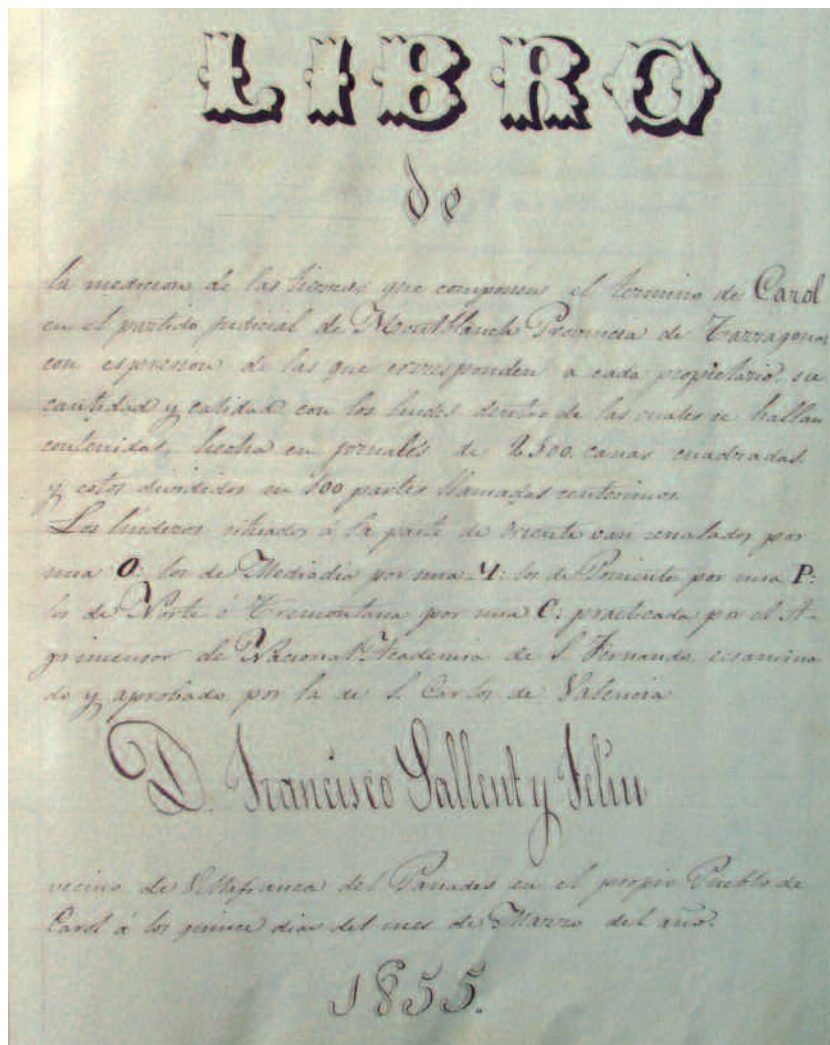 LIBRO
de
la medicion de las tierras que componen el termino de Carol
en el partido judicial de Montblanch Provincia de Tarragona
con espresion de las que corresponden a cada propietario, su
cantidad y calidad con los lindes dentro de las cuales se hallan
contenidas, hecha en jornales de 2500 canas cuadradas
y estos divididos en 100 partes llamadas centesimos.
Los linderos situados á la parte de oriente van senalados por
una O: los de Mediodia por una M: los de Poniente por una P:
los de Norte ó Tremontana por una C: practicada por el A-
grimensor de Nacional Academia de S. Fernando, ecsamina
do y aprobado por la de S. Carlos de Valencia
D. Francisco Sallent y Feliu
vecino de Villafranca del Panades en el propio Pueblo de
Carol á los quince dias del mes de Marzo del año.
1855.